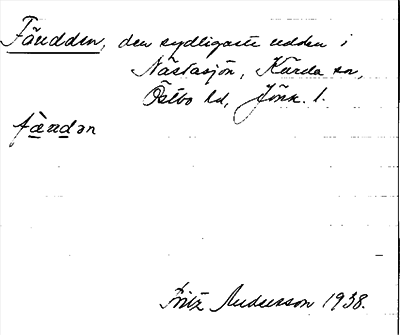 Fäudden, den sydligaste udden i
Nästasjön, Kärda sn,
Östbo hd, Jönk. l.
Fritz Andersson 1938.